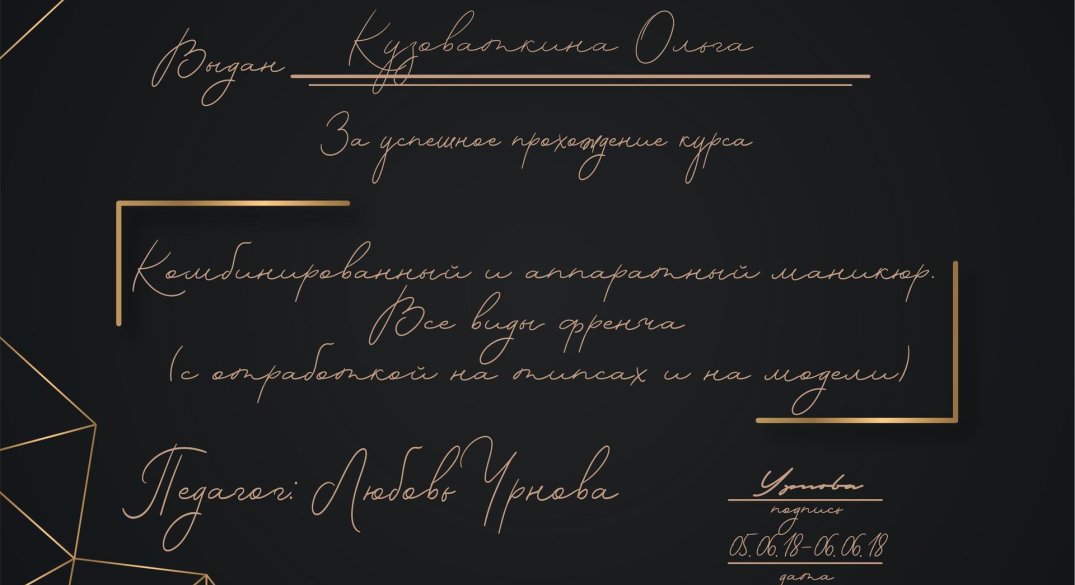 Выдан Кузоваткина Ольга
За успешное прохождение курса
Комбинированный и аппаратный маникюр.
Все виды френча
(с отработкой на типсах и на модели)
Педагог: Любовь Урнова
Урнова
подпись
05.06.18-06.06.18
дата